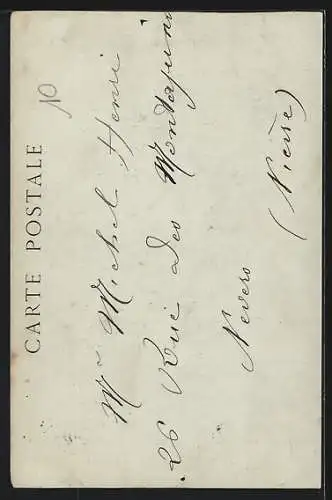 CARTE POSTALE
10
Mr Michel Henri
26 Rue des Montapins
Nevers
(Nièvre)